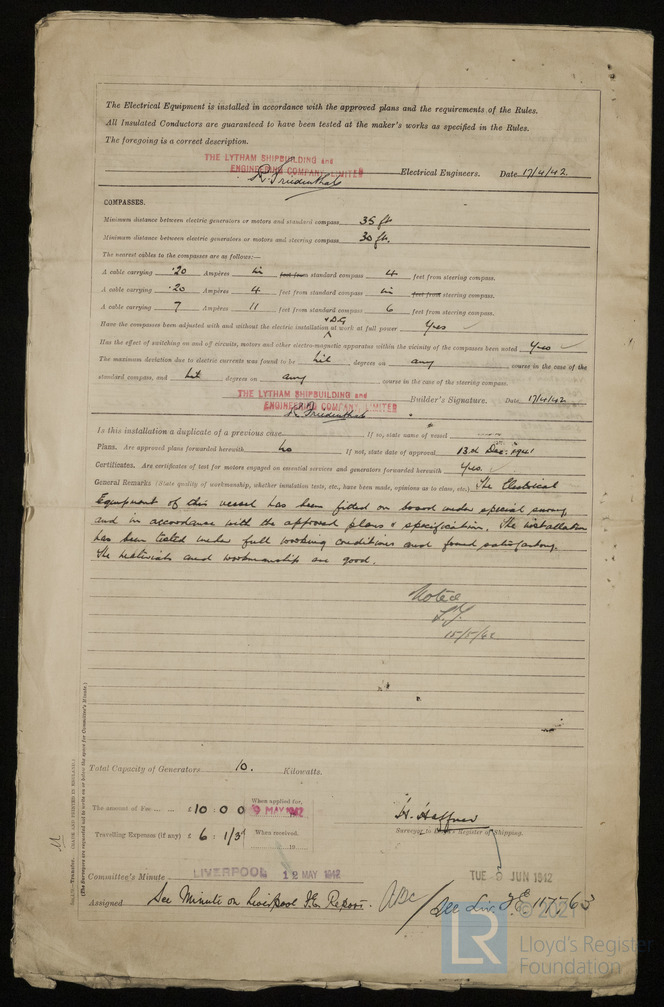 The Electrical Equipment is installed in accordance with the approved plans and the requirements of the Rules.
All Insulated Conductors are guaranteed to have been tested at the maker's works as specified in the Rules.
The foregoing is a correct description.
THE LYTHAM SHIPBUILDING and
ENGINEERING COMPANY LIMITED Electrical Engineers. Date 17/4/42
COMPASSES.
Minimum distance between electric generators or motors and standard compass 35 ft
Minimum distance between electric generators or motors and steering compass 30 ft.
The nearest cables to the compasses are as follows:—
A cable carrying .20 Ampères in feet from standard compass 4 feet from steering compass.
A cable carrying .20 Ampères 4 feet from standard compass in feet from steering compass.
A cable carrying 7 Ampères 11 feet from standard compass 6 feet from steering compass.
+ D.G
Have the compasses been adjusted with and without the electric installation at work at full power Yes
Has the effect of switching on and off circuits, motors and other electro-magnetic apparatus within the vicinity of the compasses been noted Yes
The maximum deviation due to electric currents was found to be Nil degrees on any course in the case of the
standard compass, and Nil degrees on any course in the case of the steering compass.
THE LYTHAM SHIPBUILDING and
ENGINEERING COMPANY LIMITED Builder's Signature. Date 17/4/42
Is this installation a duplicate of a previous case If so, state name of vessel
Plans. Are approved plans forwarded herewith No If not, state date of approval 13th Dec: 1941
Certificates. Are certificates of test for motors engaged on essential services and generators forwarded herewith Yes.
General Remarks (State quality of workmanship, whether insulation tests, etc., have been made, opinions as to class, etc.) The Electrical
Equipment of this vessel has been fitted on board under special survey
and in accordance with the approved plans & specification. The installation
has been tested under full working conditions and found satisfactory.
The materials and workmanship are good.
Noted
15/5/42
Total Capacity of Generators 10. Kilowatts.
The amount of Fee £ 10 : 0 0 When applied for, 9 MAY 1942
H. Haffner
Surveyor to Lloyd's Register of Shipping.
Travelling Expenses (if any) £ 6 : 1/3 When received, 19
Committee's Minute LIVERPOOL 12 MAY 1942 TUE 9 JUN 1942
Assigned See Minute on Liverpool F.E. Report. See Liv. F.E. 117563
(The Surveyors are requested not to write on or below the space for Committee's Minute.)
© 2021
LR
Lloyd's Register
Foundation